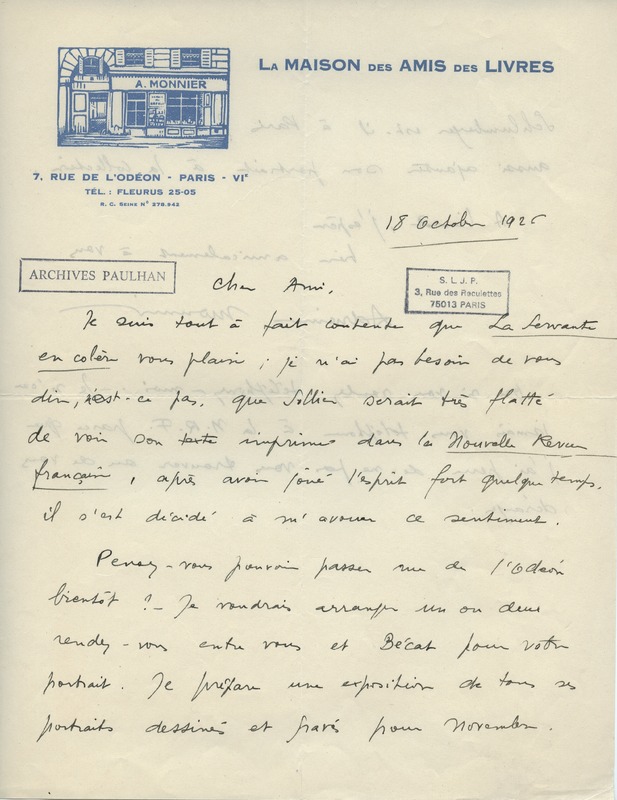 LA MAISON DES AMIS DES LIVRES
A. MONNIER
7, RUE DE L'ODÉON - PARIS - VIe
TÉL. : FLEURUS 25-05
R. C. SEINE N° 278.942
18 Octobre 1926
ARCHIVES PAULHAN
S. L. J. P.
3, Rue des Reculettes
75013 PARIS
Cher Ami,
Je suis tout à fait contente que La Servante
en colère vous plaise ; je n'ai pas besoin de vous
dire, n'est-ce pas, que Sollier serait très flatté
de voir son texte imprimé dans la Nouvelle Revue
française, après avoir joué l'esprit fort quelque temps,
il s'est décidé à m'avouer ce sentiment.
Pensez-vous pouvoir passer rue de l'Odéon
bientôt ? - Je voudrais arranger un ou deux
rendez-vous entre vous et Bécat pour votre
portrait. Je prépare une exposition de tous ses
portraits dessinés et gravés pour novembre.